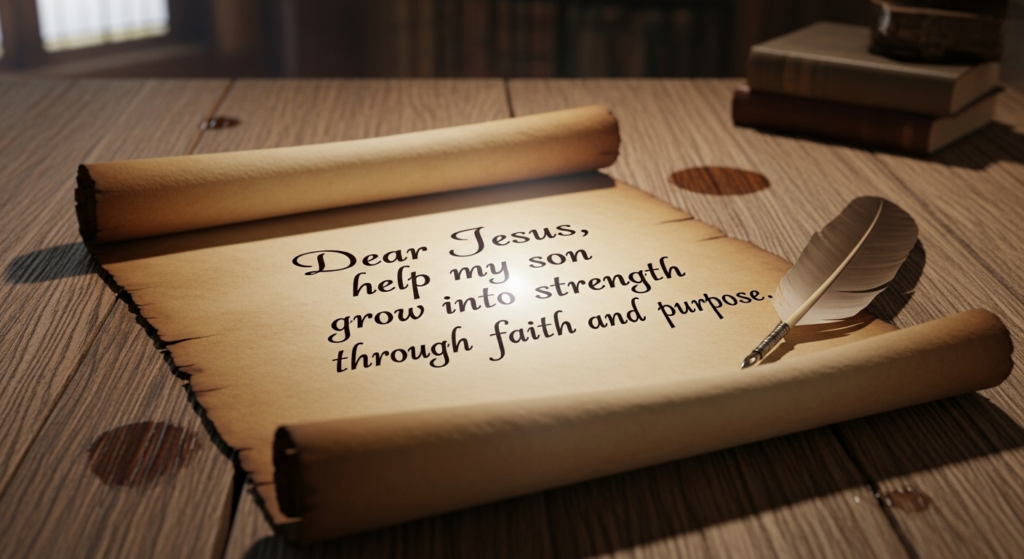 Dear Jesus,
help my son
grow into strength
through faith and purpose.